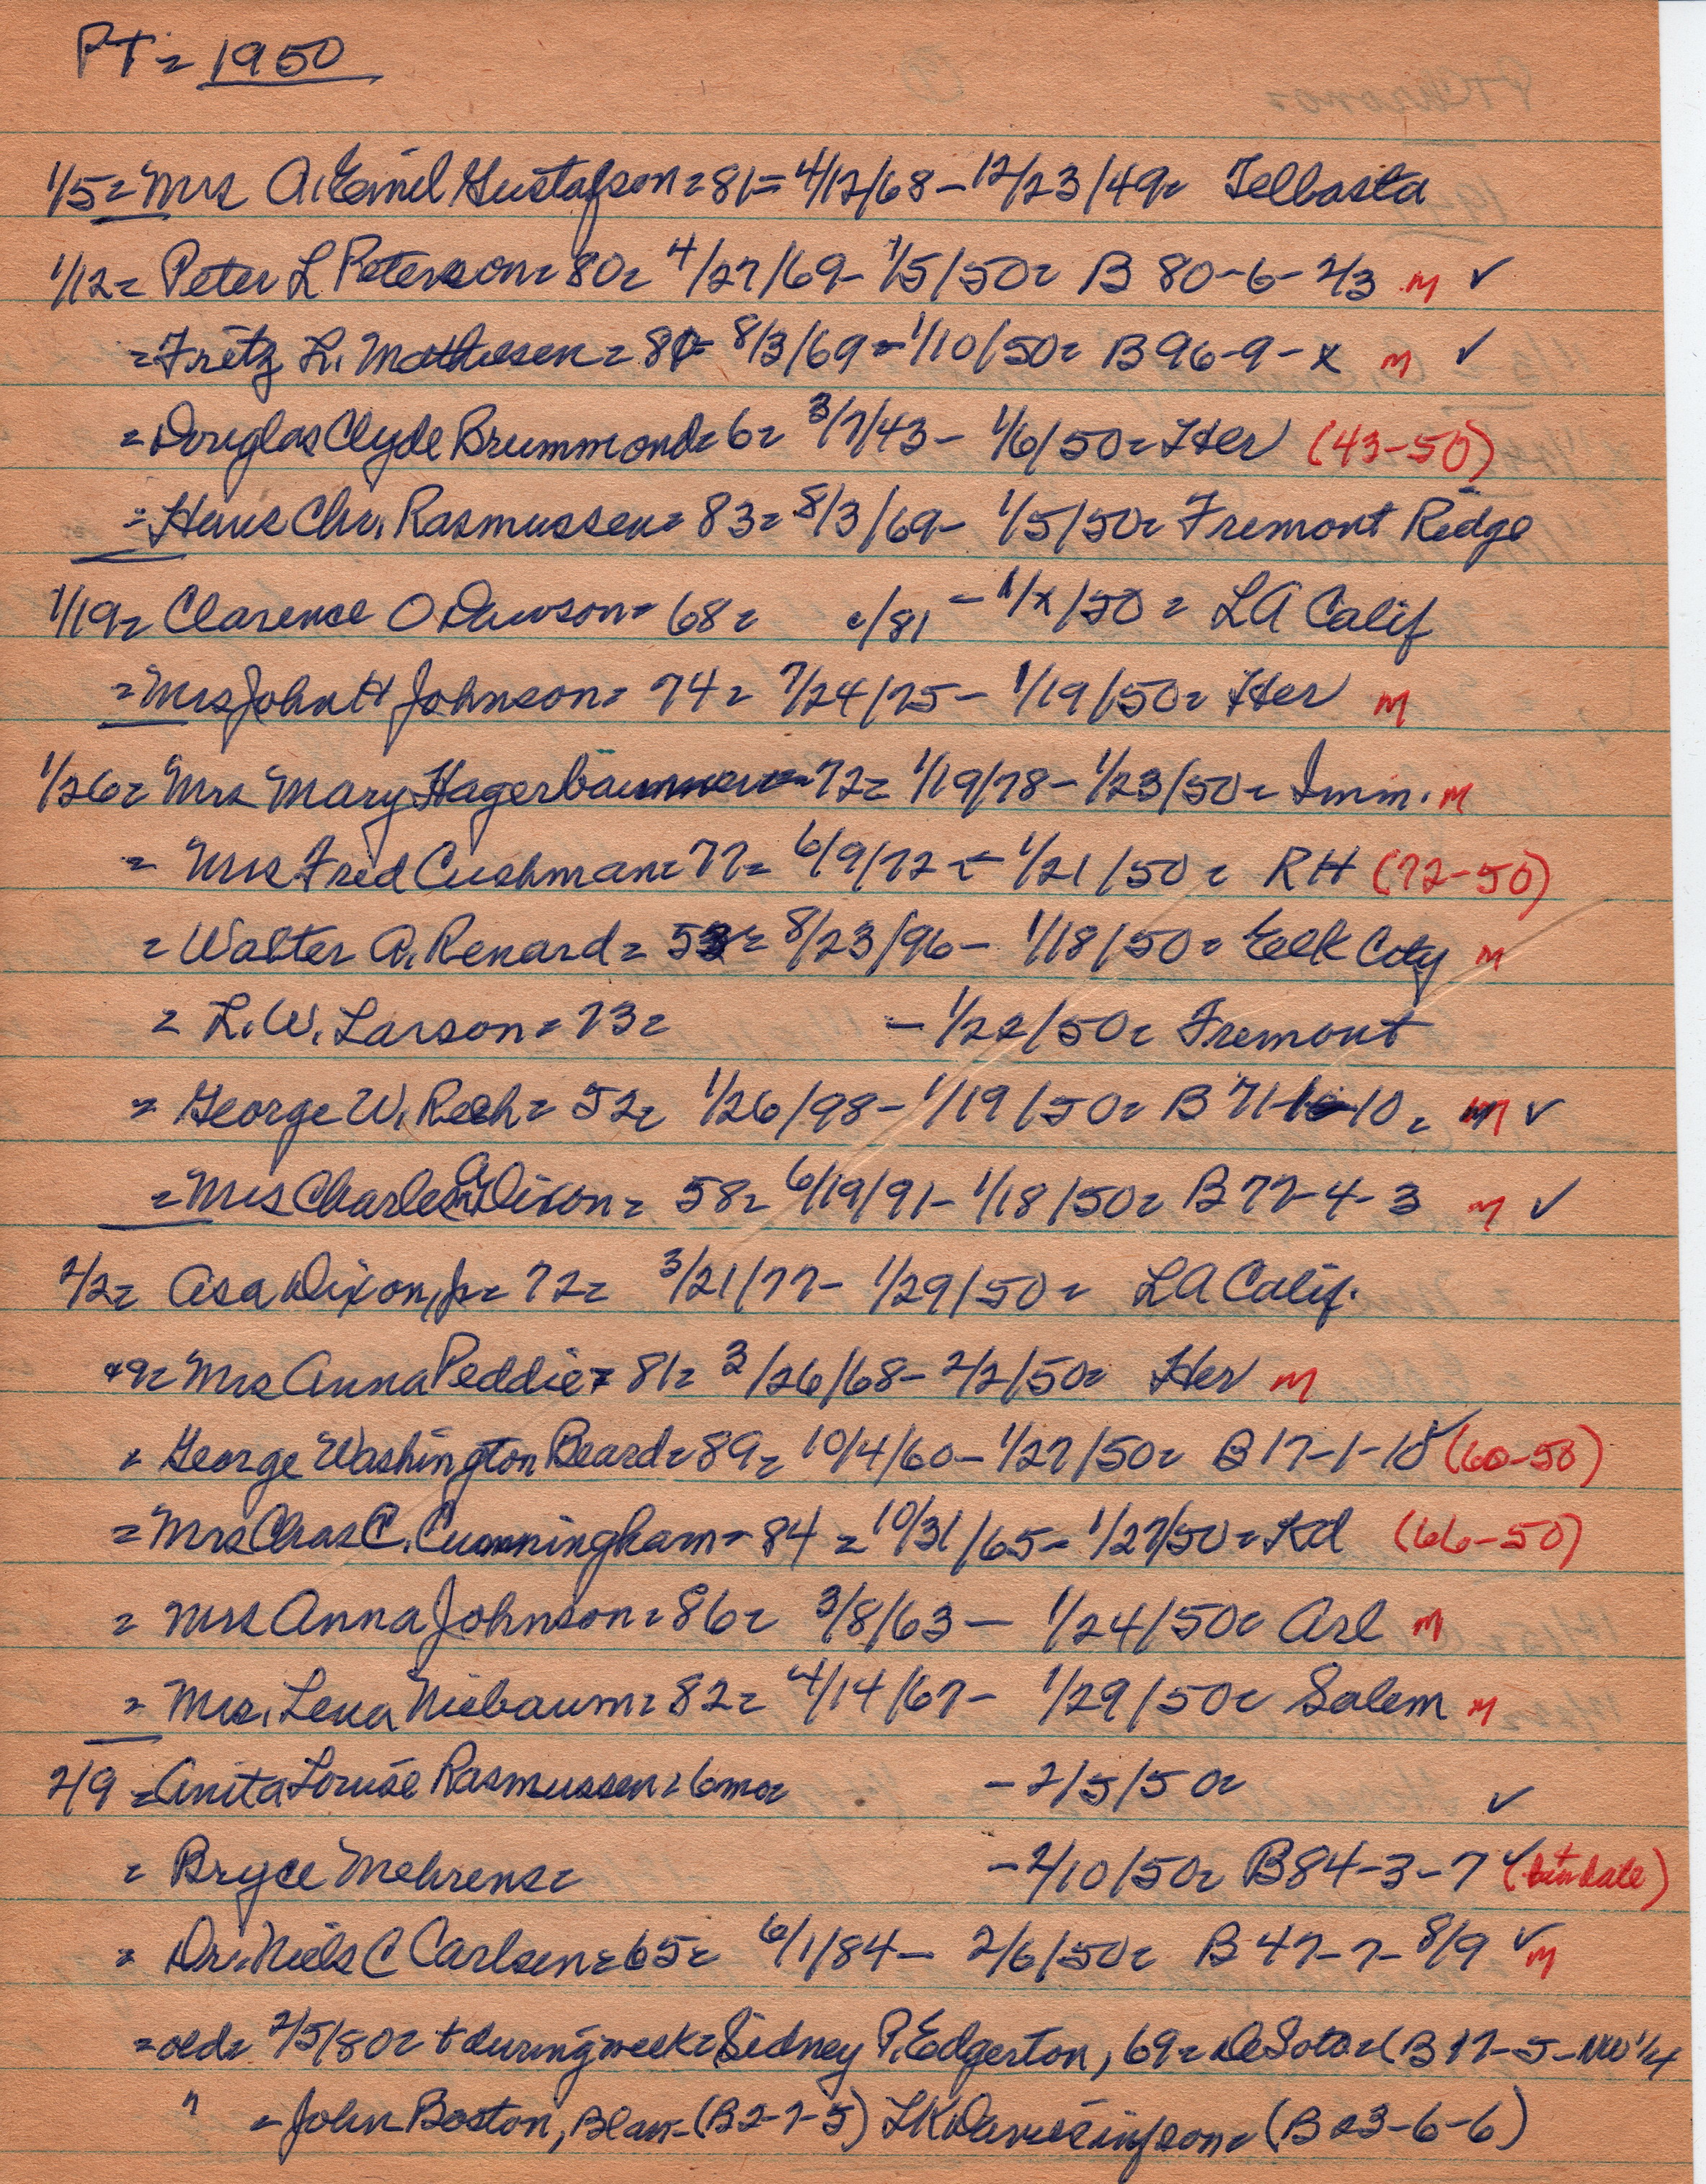 PT = 1950
1/5 = Mrs A. Emil Gustafson = 81 = 4/12/68 - 12/23/49 = Telbasta
1/12 = Peter L Peterson = 80 = 4/27/69 - 1/5/50 = B 80-6-2/3 M ✓
= Fritz L. Mathiesen = 80 = 8/3/69 - 1/10/50 = B 96-9-x M ✓
= Douglas Clyde Brummond = 6 = 3/7/43 - 1/6/50 = Her (43-50)
= Hans Chr. Rasmussen = 83 = 8/3/69 - 1/5/50 = Fremont Ridge
1/19 = Clarence O Dawson = 68 = c/81 - 1/x/50 = LA Calif
= Mrs John H Johnson = 74 = 7/24/75 - 1/19/50 = Her M
1/26 = Mrs Mary Hagerbaumer = 72 = 1/19/78 - 1/23/50 = Imm. M
= Mrs Fred Cushman = 77 = 6/9/72 - 1/21/50 = RH (72-50)
= Walter A. Renard = 53 = 8/23/96 - 1/18/50 = Elk City M
= L.W. Larson = 73 = - 1/22/50 = Fremont
= George W. Rech = 52 = 1/26/98 - 1/19/50 = B 71- -10 = M ✓
= Mrs Charles A Dixon = 58 = 6/19/91 - 1/18/50 = B 77-4-3 M ✓
2/2 = Asa Dixon, Jr = 72 = 3/21/77 - 1/29/50 = LA Calif.
= Mrs Anna Peddie = 81 = 3/26/68 - 2/2/50 = Her M
= George Washington Beard = 89 = 10/4/60 - 1/27/50 = B 17-1-10 ✓ (60-50)
= Mrs Chas C. Cunningham = 84 = 10/31/65 - 1/27/50 = Kd (66-50)
= Mrs Anna Johnson = 86 = 3/8/63 - 1/24/50 = Arl M
= Mrs. Lena Niebaum = 82 = 4/14/67 - 1/29/50 = Salem M
2/9 = Anita Louise Rasmussen = 6mo = - 2/5/50 = ✓
= Bryce Mehrens = - 2/10/50 = B 84-3-7 ✓
= Dr. Niels C Carlsen = 65 = 6/1/84 - 2/6/50 = B 47-7-8/9 ✓ M
= old = 2/5/80 = + during week = Sidney P. Edgerton, 69 = DeSoto = (B 17-5-NW 1/4
" = John Boston, Blair - (B 2-7-5) = (B 23-6-6)